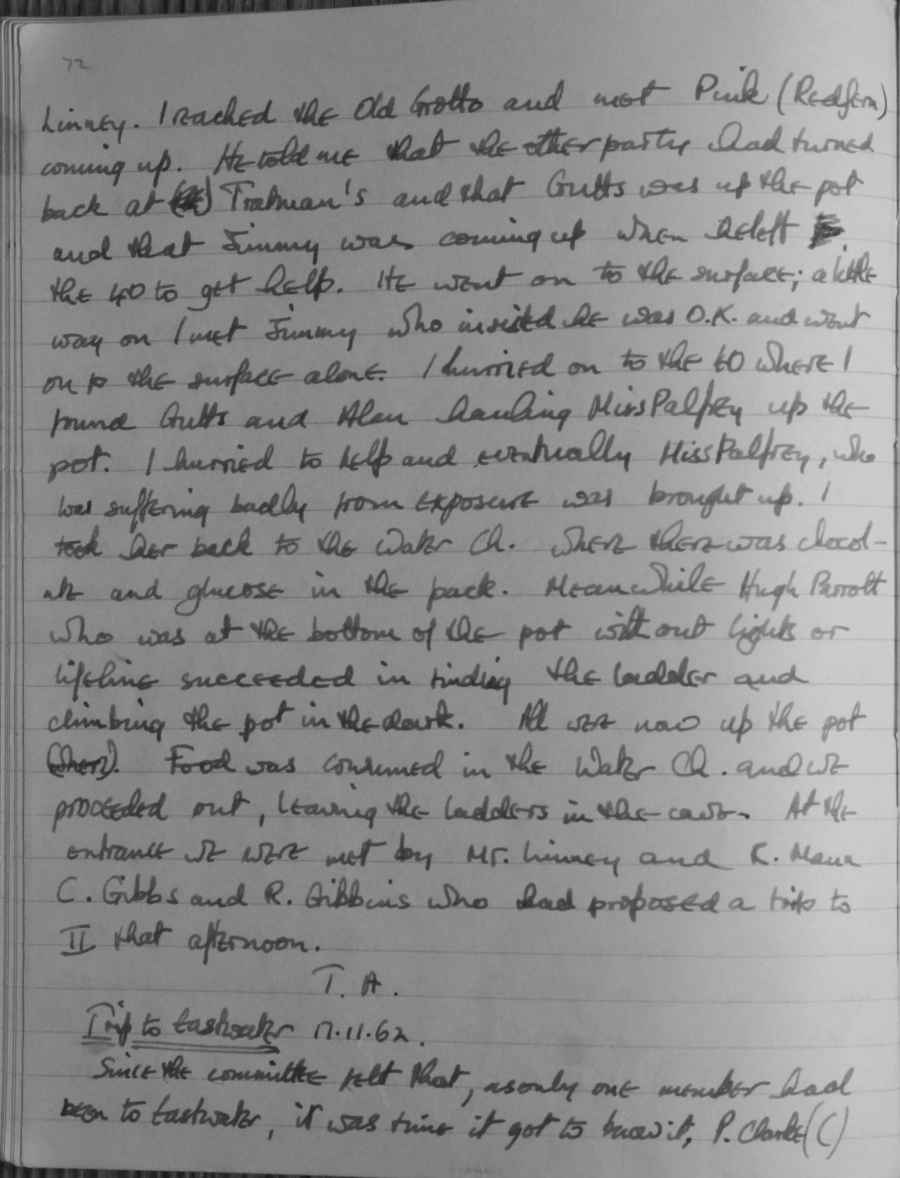 72
Linney. I reached the Old Grotto and met Pink (Redfern)
coming up. He told me that the other party had turned
back at Tratman's and that Gutts was up the pot
and that Jimmy was coming up when he left
the 40 to get help. He went on to the surface; a little
way on I met Jimmy who insisted he was O.K. and went
on to the surface alone. I hurried on to the 40 where I
found Gutts and Alan hauling Miss Palfrey up the
pot. I hurried to help and eventually Miss Palfrey, who
was suffering badly from exposure was brought up. I
took her back to the Water Ch. where there was chocol-
ate and glucose in the pack. Meanwhile Hugh Parrott
who was at the bottom of the pot without lights or
lifeline succeeded in finding the ladder and
climbing the pot in the dark. All were now up the pot
Food was consumed in the Water Ch. and we
proceeded out, leaving the ladders in the cave. At the
entrance we were met by Mr. Linney and K. Mann
C. Gibbs and R. Gibbins who had proposed a trip to
II that afternoon.
T. A.
Trip to Eastwater 17.11.62.
Since the committee felt that, as only one member had
been to Eastwater, it was time it got to know it, P. Clarke (C)